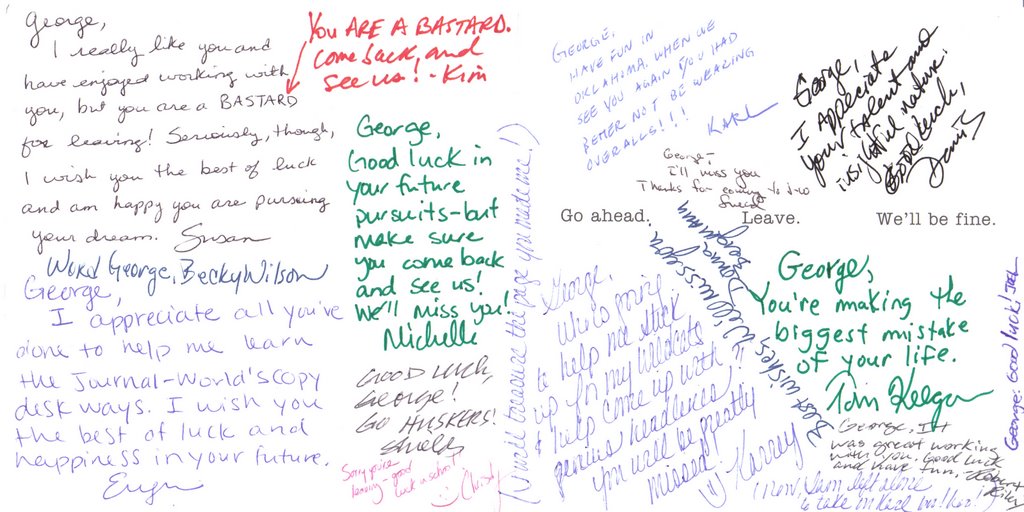 George,
I really like you and
have enjoyed working with
you, but you are a BASTARD
for leaving! Seriously, though,
I wish you the best of luck
and am happy you are pursuing
your dream. Susan
YOU ARE A BASTARD.
come back, and
see us! - Kim
Word George, Becky Wilson
George,
I appreciate all you've
done to help me learn
the Journal-World's copy
desk ways. I wish you
the best of luck and
happiness in your future.
George,
Good luck in
your future
pursuits-but
make sure
you come back
and see us!
We'll miss you!
Michelle
GOOD LUCK,
George!
GO HUSKERS!
Sorry you're
leaving - good
luck in school!
Christy
(I will treasure the page you made me!)
GEORGE,
HAVE FUN IN
OKLAHOMA. WHEN WE
SEE YOU AGAIN YOU HAD
BETTER NOT BE WEARING
OVERALLS!!!
KARL
George,
I appreciate
your talent and
insightful nature.
Good luck,
George -
I'll miss you
Thanks for coming to
Go ahead. Leave. We'll be fine.
Best wishes, Will miss you
Donna Bergmann
George,
Who's going
to help me stick
up for my Wildcats
& help come up with
genius headlines?!
You will be greatly
missed!
George,
You're making the
biggest mistake
of your life.
Tom Keegan
George, It
was great working
with you. Good luck
and have fun. - Robert
Riley
(Now, I am left alone
to take on
George: Good luck! JEL